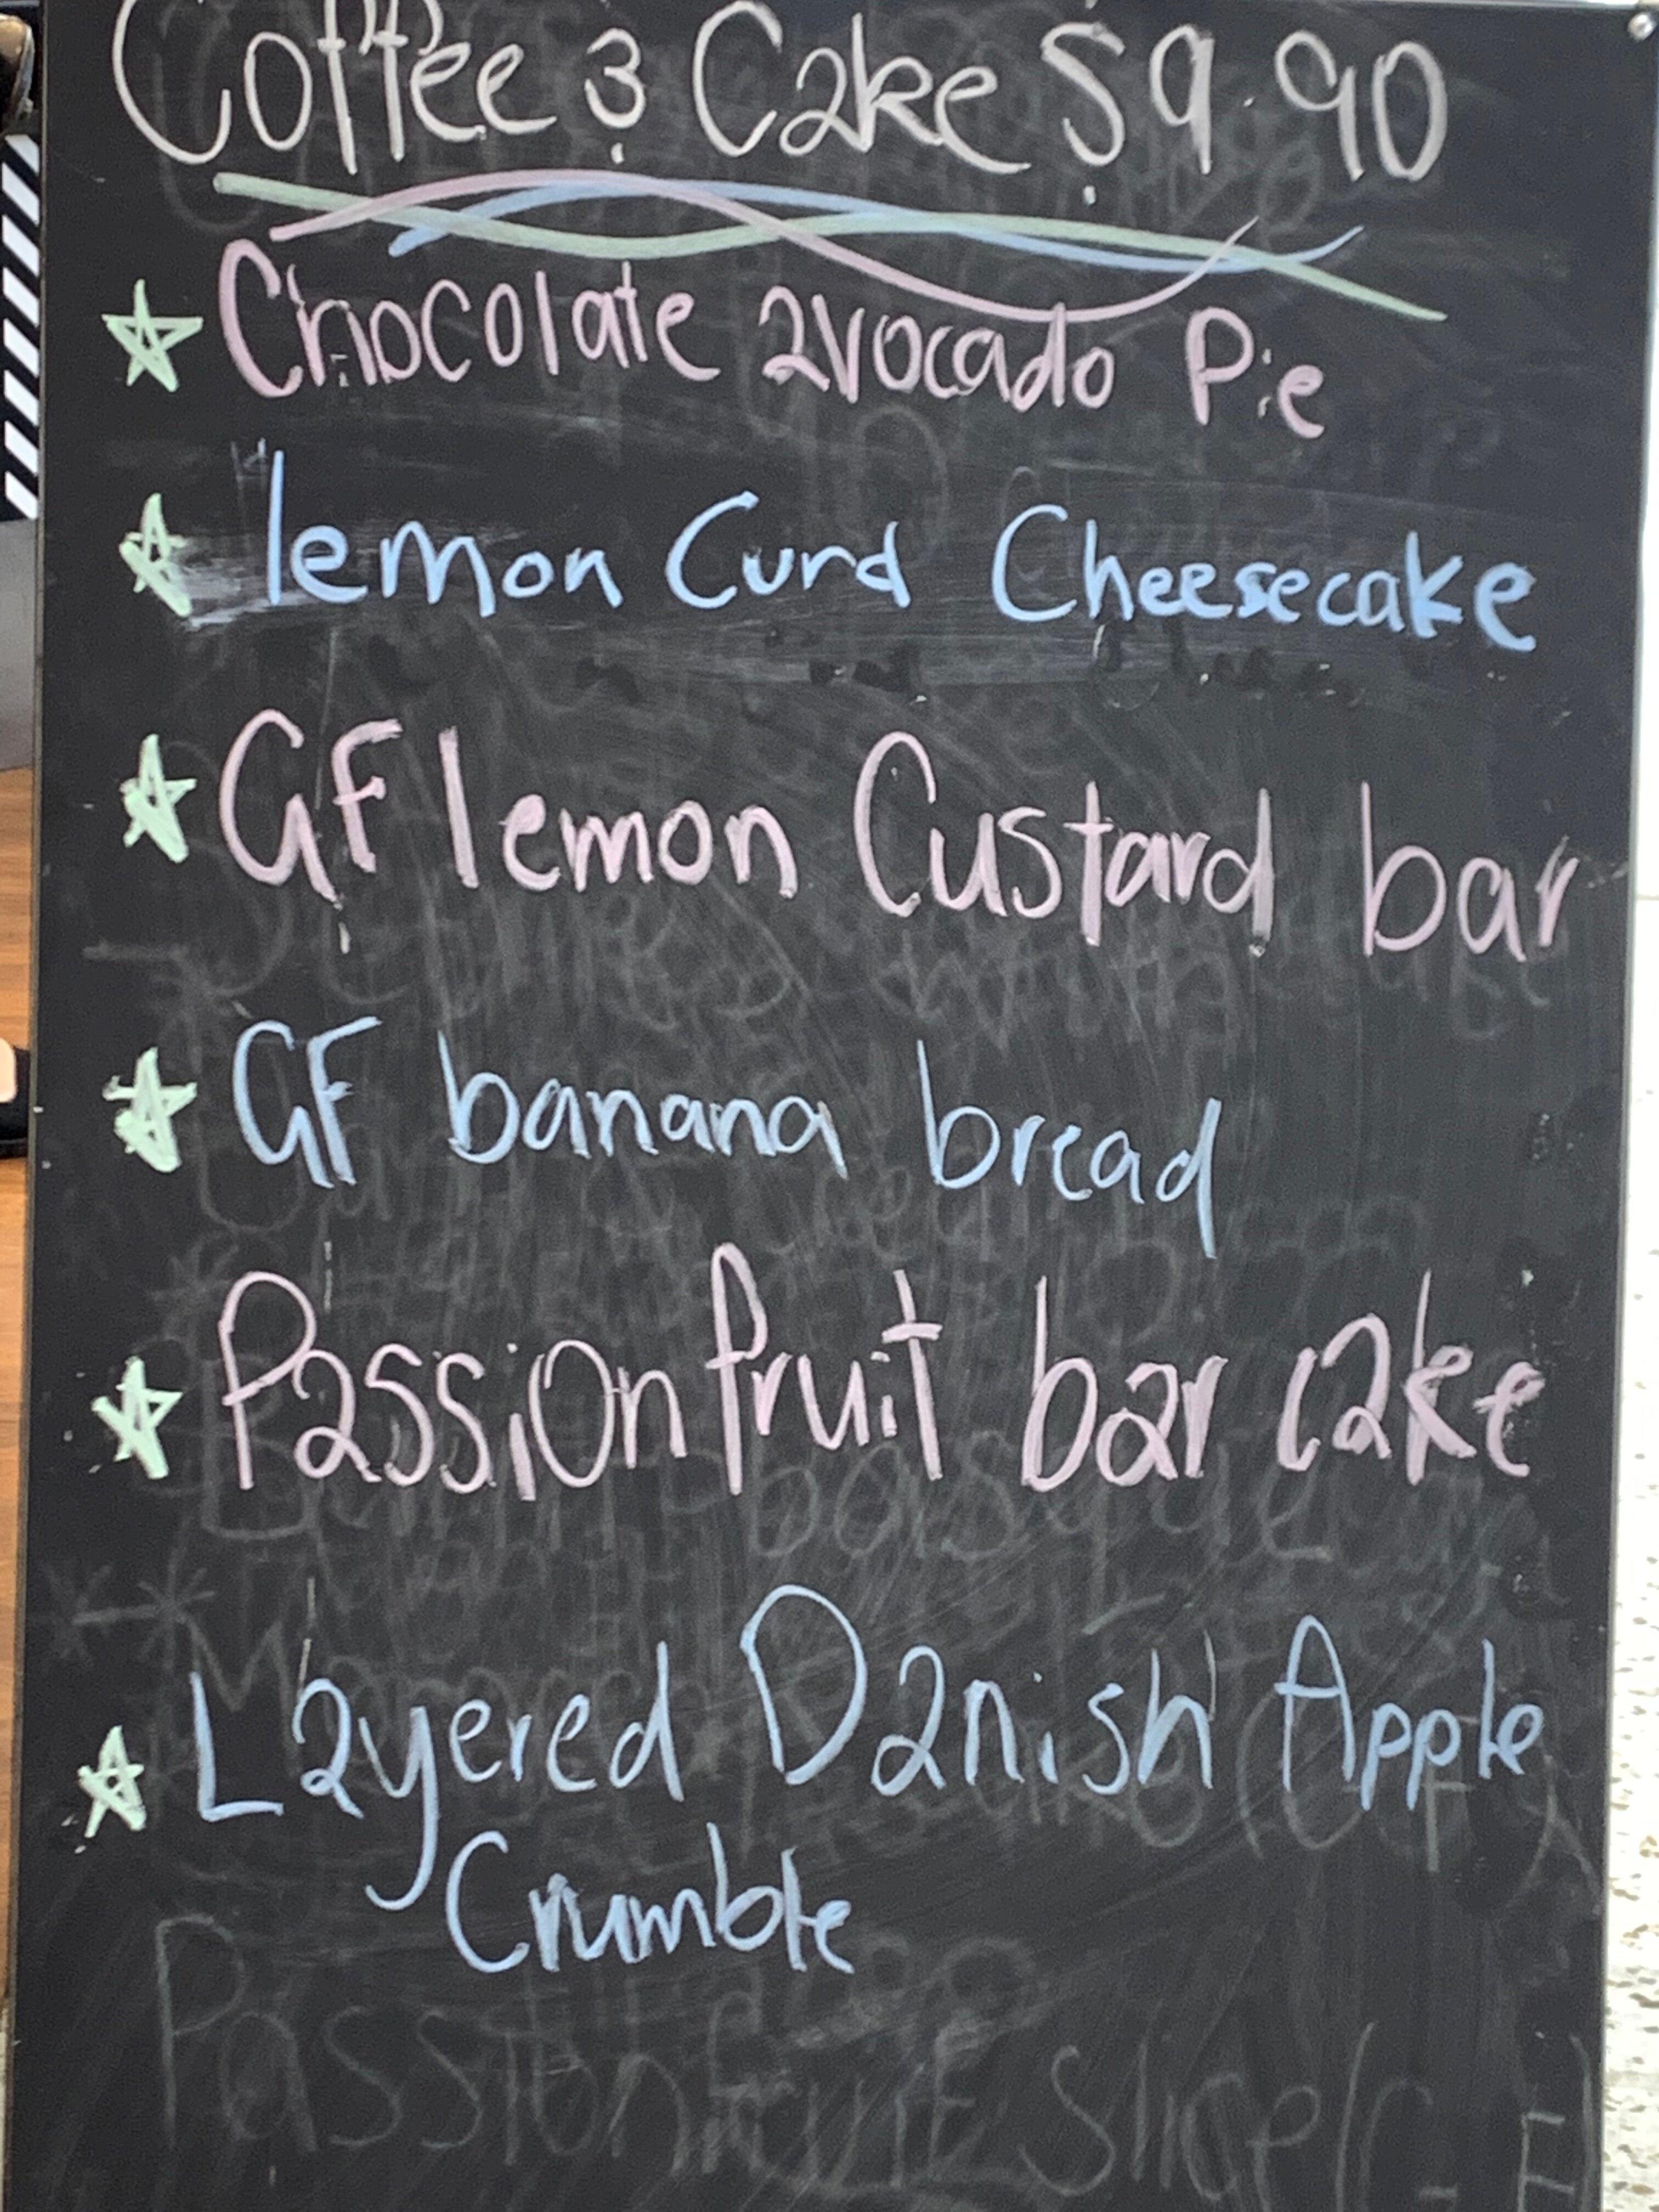 Coffee & Cake $9.90
Chocolate avocado Pie
lemon Curd Cheesecake
GF lemon Custard bar
GF banana bread
Passionfruit bar cake
Layered Danish Apple
Crumble
Passionfruit Slice (G.F)